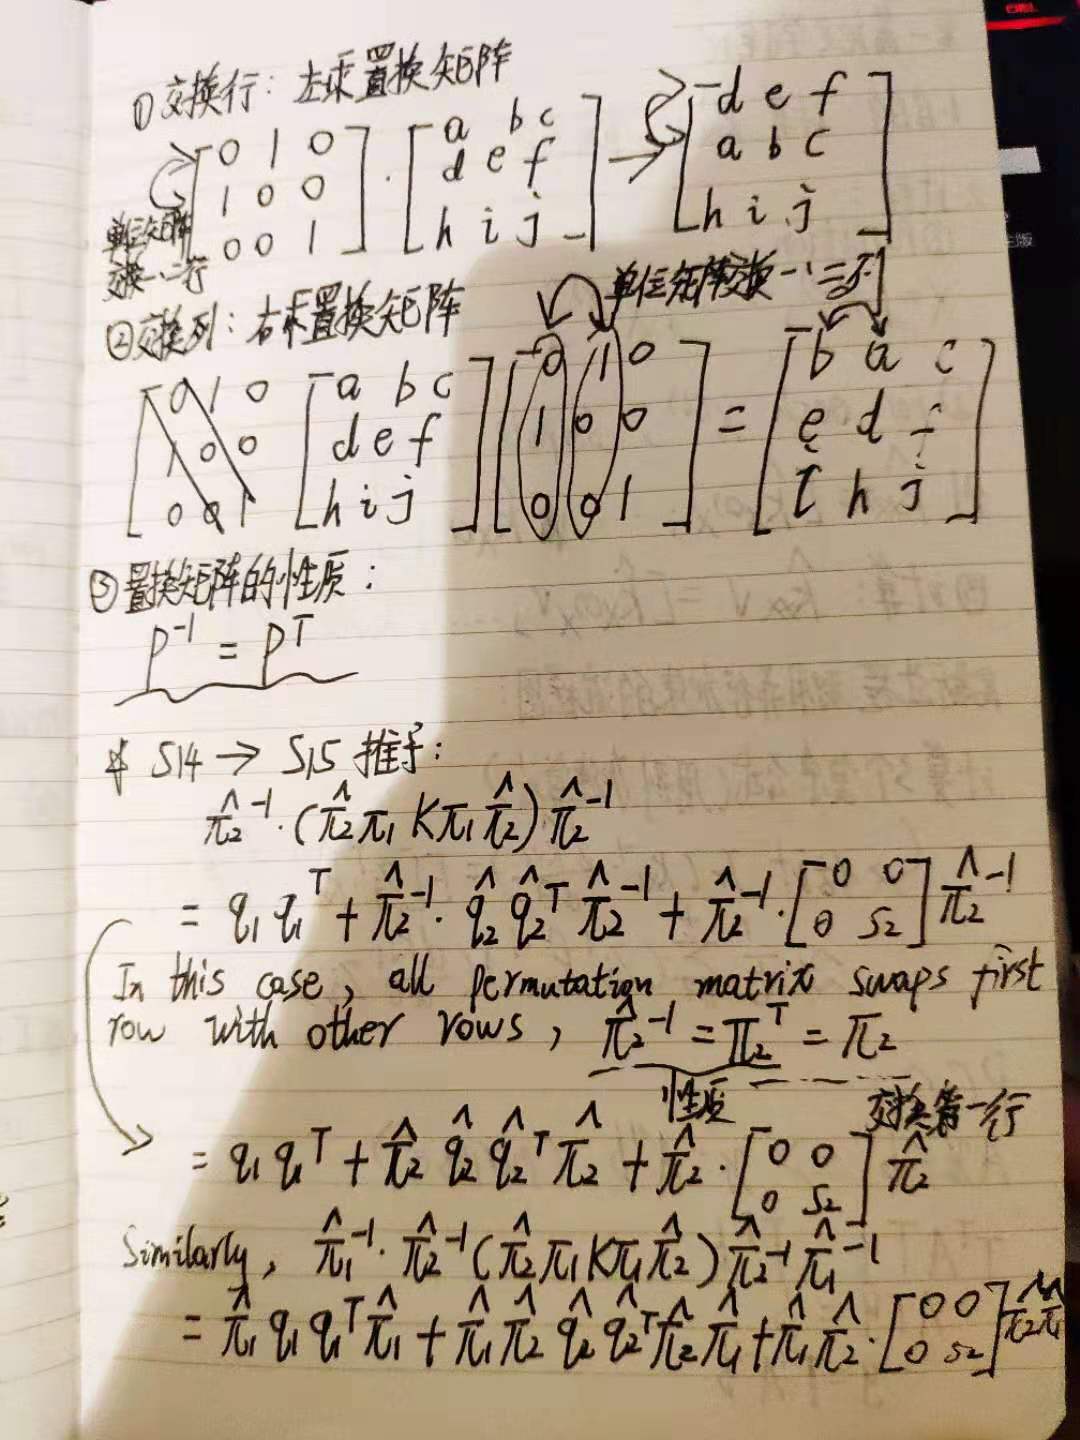 ①交换行：左乘置换矩阵
[0 1 0; 1 0 0; 0 0 1] · [a b c; d e f; h i j] → [d e f; a b c; h i j]
单位矩阵
交换一、二行
②交换列：右乘置换矩阵
单位矩阵交换一、二列
[0 1 0; 1 0 0; 0 0 1] [a b c; d e f; h i j] [0 1 0; 1 0 0; 0 0 1] = [b a c; e d f; i h j]
③置换矩阵的性质：
P⁻¹ = Pᵀ
☆ S14 → S15 推导：
π̂₂⁻¹·(π̂₂π₁Kπ₁π̂₂)π̂₂⁻¹
= q₁q₁ᵀ + π̂₂⁻¹·q̂₂q̂₂ᵀπ̂₂⁻¹ + π̂₂⁻¹·[0 0; 0 S₂]π̂₂⁻¹
In this case, all permutation matrix swaps first
row with other rows, π̂₂⁻¹ = π₂ᵀ = π₂
性质 交换第一行
= q₁q₁ᵀ + π̂₂q̂₂q̂₂ᵀπ̂₂ + π̂₂·[0 0; 0 S₂]π̂₂
Similarly, π̂₁⁻¹·π̂₂⁻¹(π̂₂π₁Kπ₁π̂₂)π̂₂⁻¹π̂₁⁻¹
= π̂₁q₁q₁ᵀπ̂₁ + π̂₁π̂₂q̂₂q̂₂ᵀπ̂₂π̂₁ + π̂₁π̂₂·[0 0; 0 S₂]π̂₂π̂₁